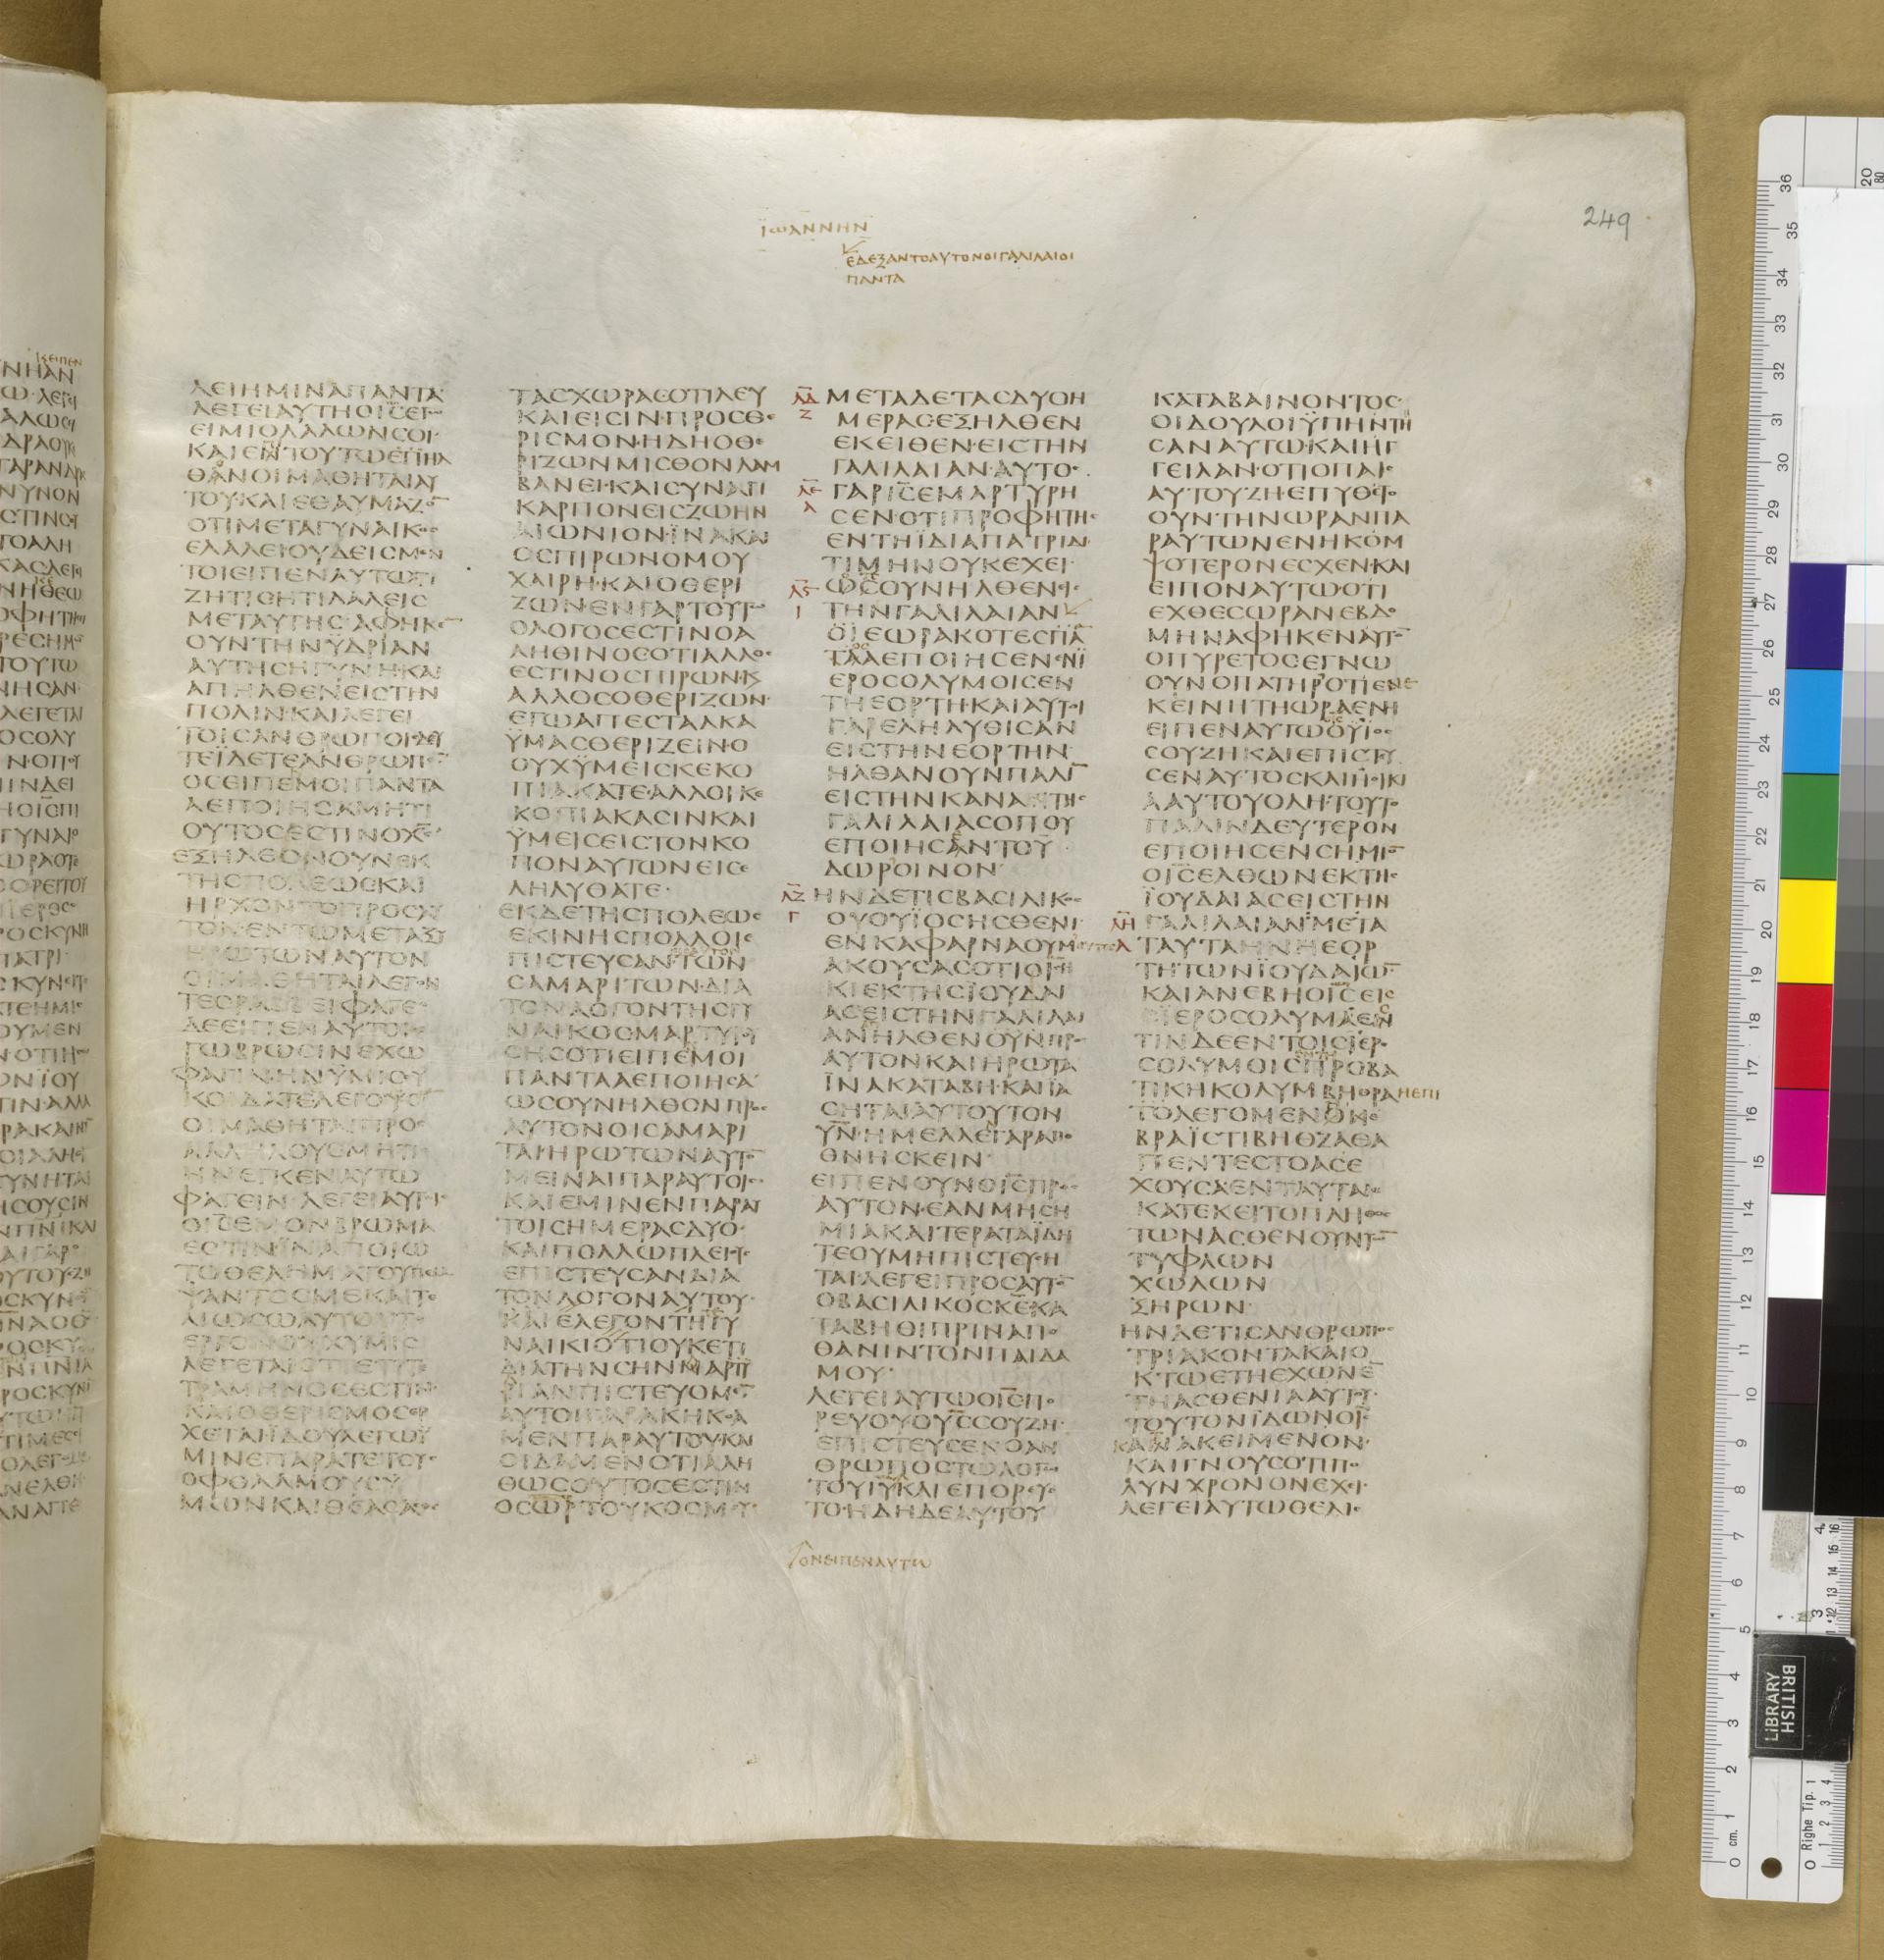 249
ΪΩΑΝΝΗΝ
ΕΔΕΞΑΝΤΟΑΥΤΟΝΟΙΓΑΛΙΛΑΙΟΙ
ΠΑΝΤΑ
ΛΕΙΗΜΙΝΑΠΑΝΤΑ
ΛΕΓΕΙΑΥΤΗΟΙ̅Ϲ̅ΕΓ
ΕΙΜΙΟΛΑΛΩΝϹΟΙ
ΘΑΝΟΙΜΑΘΗΤΑΙΑΥ
ΤΟΥΚΑΙΕΘΑΥΜΑΖΟ̅
ΟΤΙΜΕΤΑΓΥΝΑΙΚΟϹ
ΕΛΑΛΕΙΟΥΔΕΙϹΜΕΝ
ΤΟΙΕΙΠΕΝΑΥΤΩΤΙ
ΖΗΤΙϹΗΤΙΛΑΛΕΙϹ
ΜΕΤΑΥΤΗϹΑΦΗΚΕ̅
ΟΥΝΤΗΝΫΔΡΙΑΝ
ΑΥΤΗϹΗΓΥΝΗΚΑΙ
ΑΠΗΛΘΕΝΕΙϹΤΗΝ
ΠΟΛΙΝΚΑΙΛΕΓΕΙ
ΤΟΙϹΑΝΘΡΩΠΟΙϹΔΕΥ
ΤΕΪΔΕΤΕΑΝΘΡΩΠΟ̅
ΟϹΕΙΠΕΜΟΙΠΑΝΤΑ
ΑΕΠΟΙΗϹΑΜΗΤΙ
ΟΥΤΟϹΕϹΤΙΝΟΧ̅Ϲ̅
ΕΞΗΛΘΟΝΟΥΝΕΚ
ΤΗϹΠΟΛΕΩϹΚΑΙ
ΗΡΧΟΝΤΟΠΡΟϹΑΥ
ΤΟΝΕΝΤΩΜΕΤΑΞΥ
ΗΡΩΤΩΝΑΥΤΟΝ
ΟΙΜΑΘΗΤΑΙΛΕΓΟΝ
ΤΕϹΡΑΒΒΕΙΦΑΓΕΟ
ΔΕΕΙΠΕΝΑΥΤΟΙϹΕ
ΓΩΒΡΩϹΙΝΕΧΩ
ΦΑΓΙΝΗΝΫΜΙϹΟΥ
ΚΟΙΔΑΤΕΛΕΓΟΥϹΙ̅
ΟΙΜΑΘΗΤΑΙΠΡΟϹ
ΑΛΛΗΛΟΥϹΜΗΤΙϹ
ΗΝΕΓΚΕΝΑΥΤΩ
ΦΑΓΕΙΝΛΕΓΕΙΑΥΤΟΙϹ
ΟΙ̅Ϲ̅ΕΜΟΝΒΡΩΜΑ
ΕϹΤΙΝΪΝΑΠΟΙΩ
ΤΟΘΕΛΗΜΑΤΟΥΠΕΜ
ΨΑΝΤΟϹΜΕΚΑΙΤΕ
ΛΙΩϹΩΑΥΤΟΥΤΟ
ΕΡΓΟΝΟΥΧΥΜΙϹ
ΛΕΓΕΤΑΙΟΤΙΕΤΙΤΕ
ΤΡΑΜΗΝΟϹΕϹΤΙΝ
ΚΑΙΟΘΕΡΙϹΜΟϹΕΡ
ΧΕΤΑΙΪΔΟΥΛΕΓΩΫ
ΜΙΝΕΠΑΡΑΤΕΤΟΥϹ
ΟΦΘΑΛΜΟΥϹΫ
ΜΩΝΚΑΙΘΕΑϹΑϹΘΕ
ΤΑϹΧΩΡΑϹΟΤΙΛΕΥ
ΚΑΙΕΙϹΙΝΠΡΟϹΘΕ
ΡΙϹΜΟΝΗΔΗΟΘΕ
ΡΙΖΩΝΜΙϹΘΟΝΛΑΜ
ΒΑΝΕΙΚΑΙϹΥΝΑΓΙ
ΚΑΡΠΟΝΕΙϹΖΩΗΝ
ΑΙΩΝΙΟΝΪΝΑΚΑΙ
ΟϹΠΙΡΩΝΟΜΟΥ
ΧΑΙΡΗΚΑΙΟΘΕΡΙ
ΖΩΝΕΝΓΑΡΤΟΥΤΩ
ΟΛΟΓΟϹΕϹΤΙΝΟΑ
ΛΗΘΙΝΟϹΟΤΙΑΛΛΟϹ
ΕϹΤΙΝΟϹΠΙΡΩΝΚϚ
ΑΛΛΟϹΟΘΕΡΙΖΩΝ
ΕΓΩΑΠΕϹΤΑΛΚΑ
ΫΜΑϹΘΕΡΙΖΕΙΝΟ
ΟΥΧΫΜΕΙϹΚΕΚΟ
ΠΙΑΚΑΤΕΑΛΛΟΙΚΕ
ΚΟΠΙΑΚΑϹΙΝΚΑΙ
ΫΜΕΙϹΕΙϹΤΟΝΚΟ
ΠΟΝΑΥΤΩΝΕΙϹΕ
ΛΗΛΥΘΑΤΕ
ΕΚΔΕΤΗϹΠΟΛΕΩϹ
ΕΚΙΝΗϹΠΟΛΛΟΙΕ
ΠΙϹΤΕΥϹΑΝΤΩΝ
ϹΑΜΑΡΙΤΩΝΔΙΑ
ΤΟΝΛΟΓΟΝΤΗϹΓΥ
ΝΑΙΚΟϹΜΑΡΤΥΡΟΥ
ϹΗϹΟΤΙΕΙΠΕΜΟΙ
ΠΑΝΤΑΑΕΠΟΙΗϹΑ
ΩϹΟΥΝΗΛΘΟΝΠΡΟϹ
ΑΥΤΟΝΟΙϹΑΜΑΡΙ
ΤΑΙΗΡΩΤΩΝΑΥΤΟ̅
ΜΕΙΝΑΙΠΑΡΑΥΤΟΙϹ
ΚΑΙΕΜΙΝΕΝΠΑΡΑΥ
ΤΟΙϹΗΜΕΡΑϹΔΥΟ
ΚΑΙΠΟΛΛΩΠΛΕΙΟΥϹ
ΕΠΙϹΤΕΥϹΑΝΔΙΑ
ΤΟΝΛΟΓΟΝΑΥΤΟΥ
ΚΑΙΕΛΕΓΟΝΤΗΓΥ
ΝΑΙΚΙΟΤΙΟΥΚΕΤΙ
ΔΙΑΤΗΝϹΗΝΜΑΡΤΥ
ΡΙΑΝΠΙϹΤΕΥΟΜΕ̅
ΑΥΤΟΙΓΑΡΑΚΗΚΟΑ
ΜΕΝΠΑΡΑΥΤΟΥΚΑΙ
ΟΙΔΑΜΕΝΟΤΙΑΛΗ
ΘΩϹΟΥΤΟϹΕϹΤΙΝ
ΟϹΩ̅Ρ̅ΤΟΥΚΟϹΜΟΥ
ΜΕΤΑΔΕΤΑϹΔΥΟΗ
ΜΕΡΑϹΕΞΗΛΘΕΝ
ΕΚΕΙΘΕΝΕΙϹΤΗΝ
ΓΑΛΙΛΑΙΑΝΑΥΤΟϹ
ΓΑΡΙ̅Ϲ̅ΕΜΑΡΤΥΡΗ
ϹΕΝΟΤΙΠΡΟΦΗΤΗϹ
ΕΝΤΗΪΔΙΑΠΑΤΡΙΔΙ
ΤΙΜΗΝΟΥΚΕΧΕΙ
ΩϹΟΥΝΗΛΘΕΝΕΙϹ
ΤΗΝΓΑΛΙΛΑΙΑΝ
ΟΪΕΩΡΑΚΟΤΕϹΠΑ̅
ΤΑΑΕΠΟΙΗϹΕΝΕΝΪ
ΕΡΟϹΟΛΥΜΟΙϹΕΝ
ΤΗΕΟΡΤΗΚΑΙΑΥΤΟΙ
ΓΑΡΕΛΗΛΥΘΙϹΑΝ
ΕΙϹΤΗΝΕΟΡΤΗΝ
ΗΛΘΑΝΟΥΝΠΑΛΙ̅
ΕΙϹΤΗΝΚΑΝΑΝΤΗϹ
ΓΑΛΙΛΑΙΑϹΟΠΟΥ
ΕΠΟΙΗϹΑΝΤΟΫ
ΔΩΡΟΙΝΟΝ
ΗΝΔΕΤΙϹΒΑϹΙΛΙΚΟϹ
ΟΥΟΥΪΟϹΗϹΘΕΝΙ
ΕΝΚΑΦΑΡΝΑΟΥΜ
ΑΚΟΥϹΑϹΟΤΙΟΙ̅Ϲ̅Η
ΚΙΕΚΤΗϹΪΟΥΔΑΙ
ΑϹΕΙϹΤΗΝΓΑΛΙΛΑΙ
ΑΝΗΛΘΕΝΟΥΝΠΡΟϹ
ΑΥΤΟΝΚΑΙΗΡΩΤΑ
ΪΝΑΚΑΤΑΒΗΚΑΙΪΑ
ϹΗΤΑΙΑΥΤΟΥΤΟΝ
Υ̅Ν̅ΗΜΕΛΛΕΓΑΡΑΠΟ
ΘΝΗϹΚΕΙΝ
ΕΙΠΕΝΟΥΝΟΙ̅Ϲ̅ΠΡΟϹ
ΑΥΤΟΝΕΑΝΜΗϹΗ
ΜΙΑΚΑΙΤΕΡΑΤΑΪΔΗ
ΤΕΟΥΜΗΠΙϹΤΕΥϹΗ
ΤΑΙΛΕΓΕΙΠΡΟϹΑΥΤΟ̅
ΟΒΑϹΙΛΙΚΟϹΚΕΚΑ
ΤΑΒΗΘΙΠΡΙΝΑΠΟ
ΘΑΝΙΝΤΟΝΠΑΙΔΑ
ΜΟΥ
ΛΕΓΕΙΑΥΤΩΟΙ̅Ϲ̅ΠΟ
ΡΕΥΟΥΟΥ̅Ϲ̅ϹΟΥΖΗ
ΕΠΙϹΤΕΥϹΕΝΟΑΝ
ΘΡΩΠΟϹΤΩΛΟΓΩ
ΤΟΥΙ̅Υ̅ΚΑΙΕΠΟΡΕΥΕ
ΤΟΗΔΗΔΕΑΥΤΟΥ
ΟΝΕΙΠΕΝΑΥΤΩ
ΚΑΤΑΒΑΙΝΟΝΤΟϹ
ΟΙΔΟΥΛΟΙΫΠΗΝΤΗ
ϹΑΝΑΥΤΩΚΑΙΗΓ
ΓΕΙΛΑΝΟΤΙΟΠΑΙϹ
ΑΥΤΟΥΖΗΕΠΥΘΕΤΟ
ΟΥΝΤΗΝΩΡΑΝΠΑ
ΡΑΥΤΩΝΕΝΗΚΟΜ
ΨΟΤΕΡΟΝΕϹΧΕΝΚΑΙ
ΕΙΠΟΝΑΥΤΩΟΤΙ
ΕΧΘΕϹΩΡΑΝΕΒΔΟ
ΜΗΝΑΦΗΚΕΝΑΥΤΟ̅
ΟΠΥΡΕΤΟϹΕΓΝΩ
ΟΥΝΟΠΑΤΗΡΟΤΙΕΝΕ
ΚΕΙΝΗΤΗΩΡΑΕΝΗ
ΕΙΠΕΝΑΥΤΩΟΥΪΟϹ
ϹΟΥΖΗΚΑΙΕΠΙϹΤΕΥ
ϹΕΝΑΥΤΟϹΚΑΙΗΟΙΚΙ
ΑΑΥΤΟΥΟΛΗΤΟΥΤΟ
ΠΑΛΙΝΔΕΥΤΕΡΟΝ
ΕΠΟΙΗϹΕΝϹΗΜΙΟ̅
ΟΙ̅Ϲ̅ΕΛΘΩΝΕΚΤΗϹ
ΪΟΥΔΑΙΑϹΕΙϹΤΗΝ
ΓΑΛΙΛΑΙΑΝΜΕΤΑ
ΤΑΥΤΑΗΝΗΕΟΡ
ΤΗΤΩΝΪΟΥΔΑΙΩ̅
ΚΑΙΑΝΕΒΗΟΙ̅Ϲ̅ΕΙϹ
ΪΕΡΟϹΟΛΥΜΑΕϹ
ΤΙΝΔΕΕΝΤΟΙϹΪΕΡΟ
ϹΟΛΥΜΟΙϹΠΡΟΒΑ
ΤΙΚΗΚΟΛΥΜΒΗΘΡΑ
ΤΟΛΕΓΟΜΕΝΟΝΕ
ΒΡΑΪϹΤΙΒΗΘΖΑΘΑ
ΠΕΝΤΕϹΤΟΑϹΕ
ΧΟΥϹΑΕΝΤΑΥΤΑΙϹ
ΚΑΤΕΚΕΙΤΟΠΛΗΘΟϹ
ΤΩΝΑϹΘΕΝΟΥΝΤΩ̅
ΤΥΦΛΩΝ
ΧΩΛΩΝ
ΞΗΡΩΝ
ΗΝΔΕΤΙϹΑΝΘΡΩΠΟϹ
ΤΡΙΑΚΟΝΤΑΚΑΙΟ
ΚΤΩΕΤΗΕΧΩΝΕ̅
ΤΗΑϹΘΕΝΙΑΑΥΤΟΥ
ΤΟΥΤΟΝΪΔΩΝΟΙ̅Ϲ̅
ΑΝΑΚΕΙΜΕΝΟΝ
ΚΑΙΓΝΟΥϹΟΤΙΠΟ
ΛΥΝΧΡΟΝΟΝΕΧΕΙ
ΛΕΓΕΙΑΥΤΩΘΕΛΙϹ